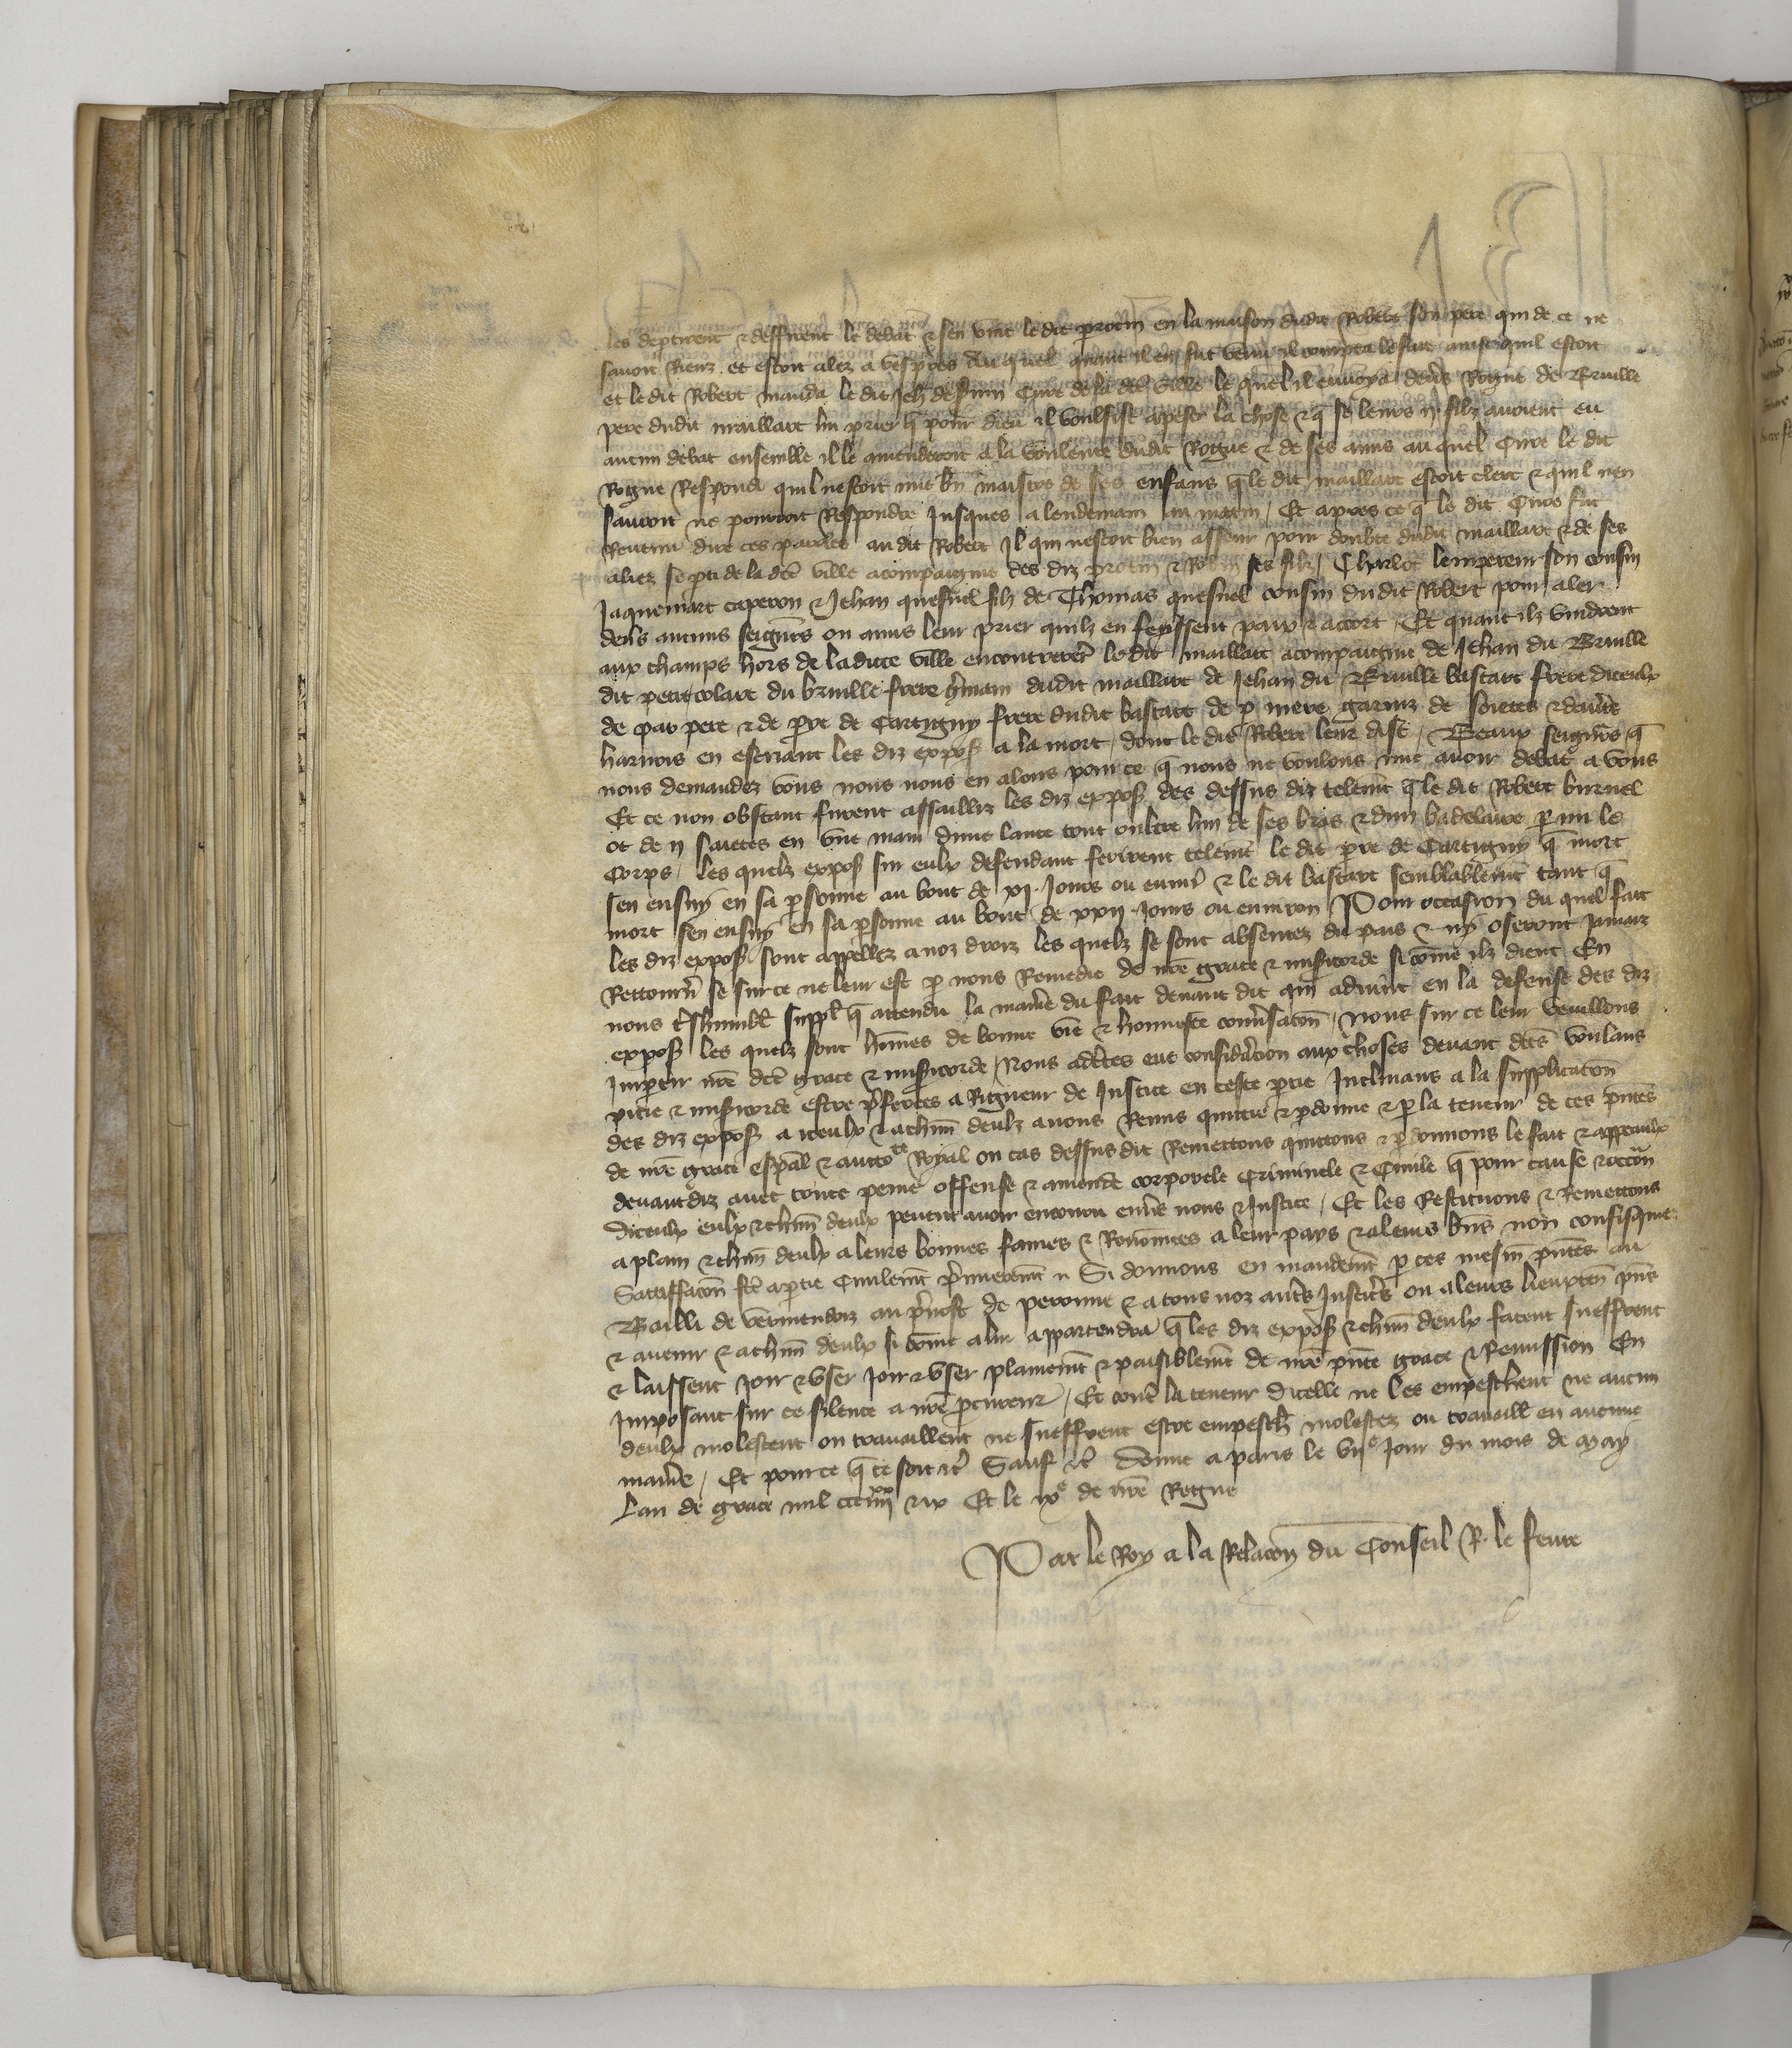 les deptirent & deffirent le debat & sen vint le dit protin en la maison dudit Robert son pere qui de ce ne
savoit Riens et estoit alez a vespres du quel quant il en fut venu il compta le fait ainsi quil estoit
et le dit Robert manda le dit Jeh Curé de la dce ville le quel il envoya devs Rogue de Bruille
pere dudit maillart lui prier q pour dieu il voulsist apeser la chose & q se leurs ij filz avoient eu
aucun debat ensemble il le amenderoit a la voulente dudit Rogue & de ses amis au quel Cure le dit
Rogue Respondi quil nestoit mie bn maistre de ses enfans q le dit maillart estoit clerc & quil nen
sauroit ne pourroit Respondre Jusques a lendemain au matin / Et apres ce q le dit Cure fut
Revenu dire ces paroles au dit Robert Il qui nestoit bien asseur pour doubte dudit maillart & de ses
aliez se pti de la dce ville acompaigne des diz protin & Robin ses filz / Charlot lempereur son cousin
Jaquemart caperon & Jehan quesnel filz de Thomas quesnel cousin dudit Robert pour aler
devs aucuns seigns ou amis leur prier quilz en feyssent paix & accort / Et quant ilz vindrent
aux champs hors de ladicte ville encontrerent le dit maillart acompaigne de Jehan du Bruille
dit petit colart du bruille frere gmain dudit maillart de Jehan du Bruille bastart frere diceulx
de par pere & de pre de Cartigny frere dudit bastart de p mere garniz de saietes & dautre
harnois en escriant les diz expos a la mort / dont le dit Robert leur dist / Beaux seigns q
nous demandez vous nous nous en alons pour ce q nous ne voulons mie avoir debat a vous
Et ce non obstant furent assailliz les diz expos des dessus diz telemt q le dit Robert burnel
ot de ij saietes en vne main dune lance tout oultre lun de ses bras & dun badelaire p mi le
Corps / les quelz expos sur eulx defendant ferirent telemt le dit pre de Cartigny q mort
sen ensuy en sa psonne au bout de xj. Jours ou envir & le dit bastart semblablemt tant q
mort sen ensuy en sa psonne au bout de xxij Jours ou environ Pour occasion du quel fait
les diz expos sont appellez a noz droiz les quelz se sont absentez du pais & ny oseront Jamaiz
Rettourn se sur ce ne leur est p nous Remedie de nre grace & misicorde si come ilz dient En
nous tshumbl suppl q attendu la mane du fait devant dit qui advint en la defense des diz
expos les quelz sont homes de bonne vie & honneste convsacon / Nous sur ce leur veuillons
Imptir nre dce grace & misicorde / Nous adctes eue considacion aux choses devant dces voulans
pitie & misicorde estre pferees a Rigueur de Justice en ceste ptie Inclinans a la supplicacon
des diz expos a iceulx & a chun deulz avons Remis quictie & pdonne & p la teneur de ces pntes
de nre grace espal & auctote Royal ou cas dessus dit Remettons quictons & pdonnons le fait & appeaulx
devantdiz avec toute peine offense & amende corporele Criminele & Civile q pour cause & occon
diceulx eulx & chun deulx pevent avoir encouru envs nous & Justice / Et les Restituons & Remettons
a plain & chun deulx a leurs bonnes fames & Renomees a leur pays & a leurs bns non confisques
Satisffacon fce a ptie Civilemt pmierement Si donnons en mandemt p ces mesm pntes au
Bailli de vermendoiz au pvost de peronne & a tous noz autres Justics ou a leurs lieuxten pns
& avenir & a chun deulx si come a lui appartendra q les diz expos & chun deulx facent sueffrent
& laissent Joir & vser Joir & vser plainemt & paisiblemt de nre pnte grace & Remission En
Imposant sur ce silence a nre pcureur / Et contre la teneur dicelle ne les empeschent ne aucun
deulx molestent ou travaillent ne sueffrent estre empesch molestez ou travaill en aucune
manie / Et pour ce q ce soit &c Sauf &c donne a paris le vije Jour du mois de May
Lan de grace mil ccc iiijxx & ix Et le ixe de nre Regne
Par le Roy a la Relacon du Conseil R. le fevre